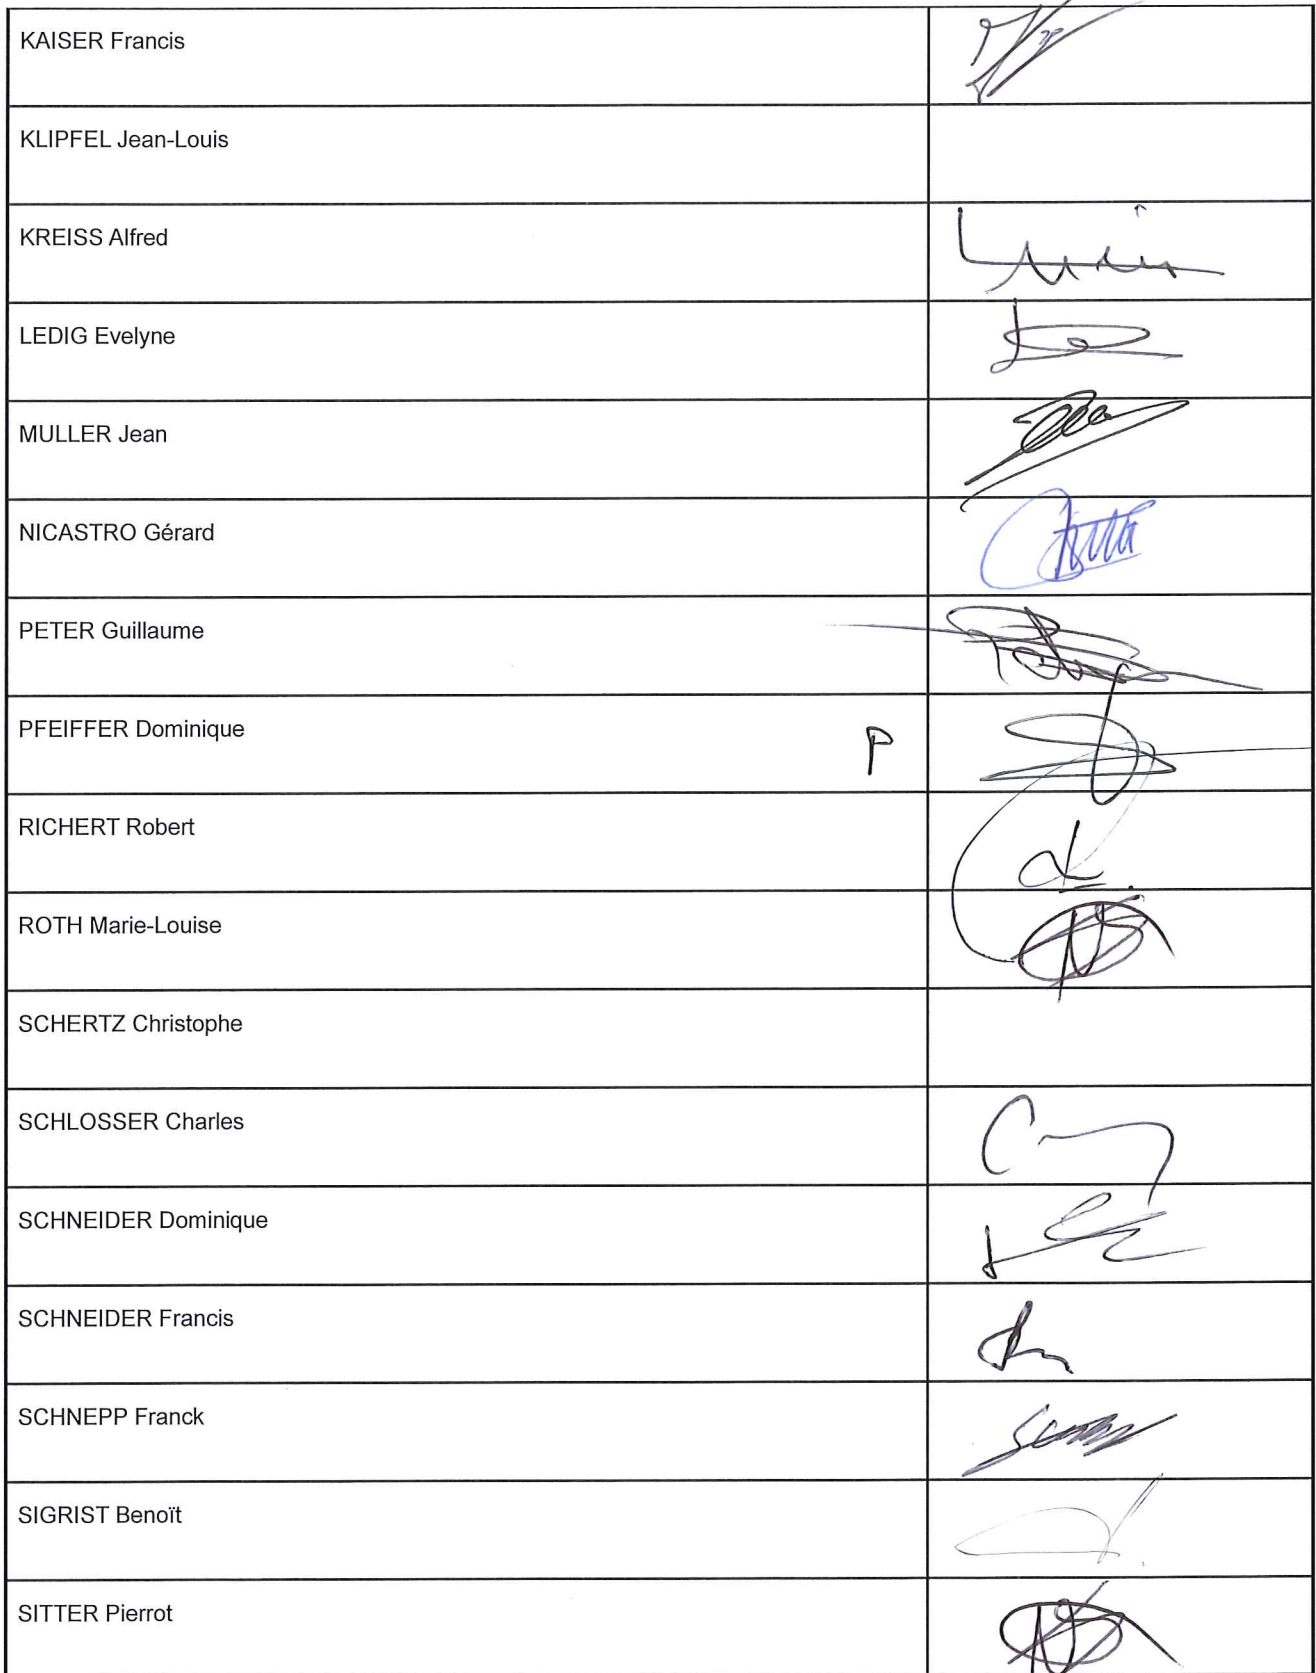 KAISER Francis
KLIPFEL Jean-Louis
KREISS Alfred
LEDIG Evelyne
MULLER Jean
NICASTRO Gérard
PETER Guillaume
PFEIFFER Dominique P
RICHERT Robert
ROTH Marie-Louise
SCHERTZ Christophe
SCHLOSSER Charles
SCHNEIDER Dominique
SCHNEIDER Francis
SCHNEPP Franck
SIGRIST Benoït
SITTER Pierrot